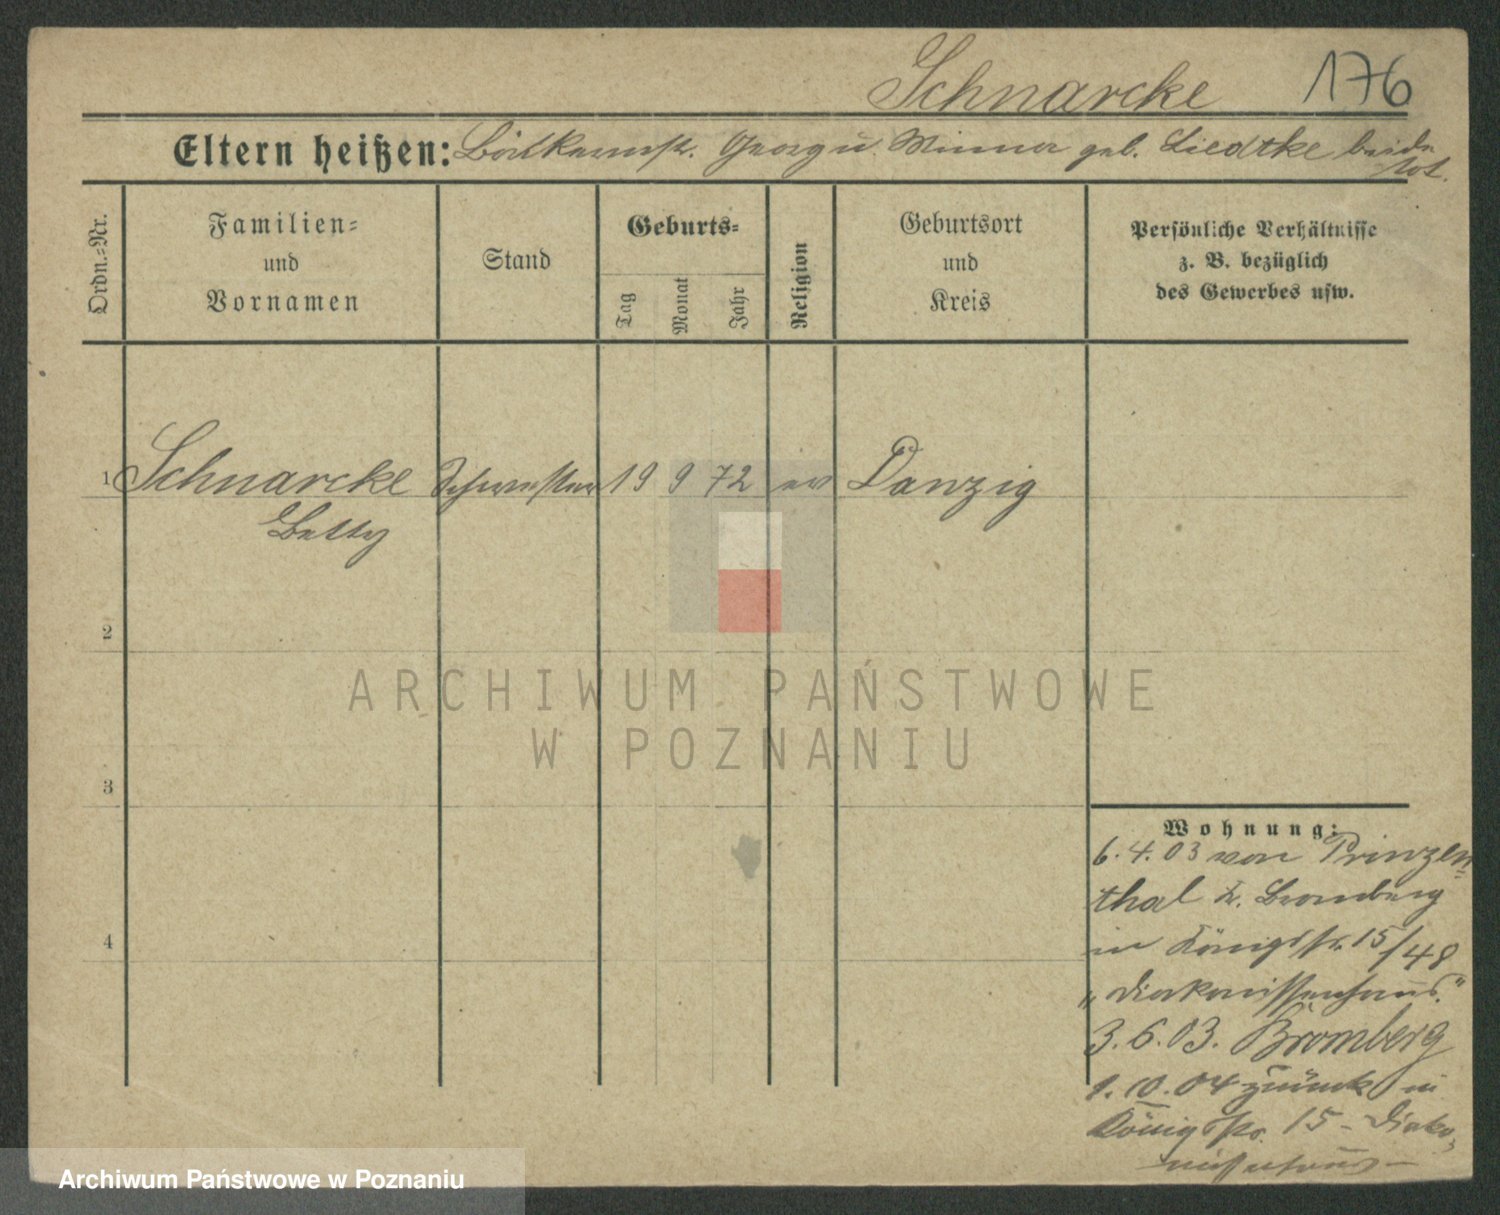 Schnarcke 176
Eltern heißen: Böttchermstr. Georg u. Minna geb. Liedtke beide
tot.
Ordn.=Nr.
Familien=
und
Vornamen
Stand
Geburts=
Tag
Monat
Jahr
Religion
Geburtsort
und
Kreis
Persönliche Verhältnisse
z. B. bezüglich
des Gewerbes usw.
1 Schnarcke Schwester 19 9 72 ev Danzig
Betty
2
ARCHIWUM PAŃSTWOWE
W POZNANIU
3
Wohnung:
6.4.03 von Prinzen=
thal b. Bromberg
in Königstr. 15/48
„Diakonissenhaus."
4
3.6.03. Bromberg
1.10.04 zurück in
Königstr. 15 - Diako=
nissenhaus -
Archiwum Państwowe w Poznaniu